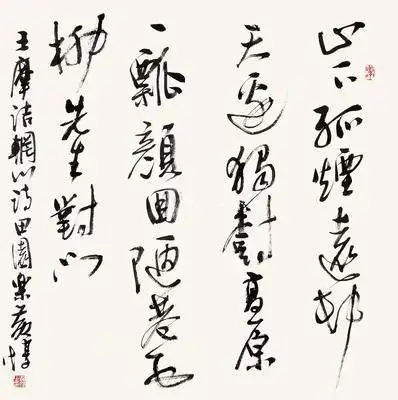 山下孤煙遠邨
天邊獨樹高原
一瓢顏回陋巷五
柳先生對門
王摩詰輞川詩田園樂黃惇